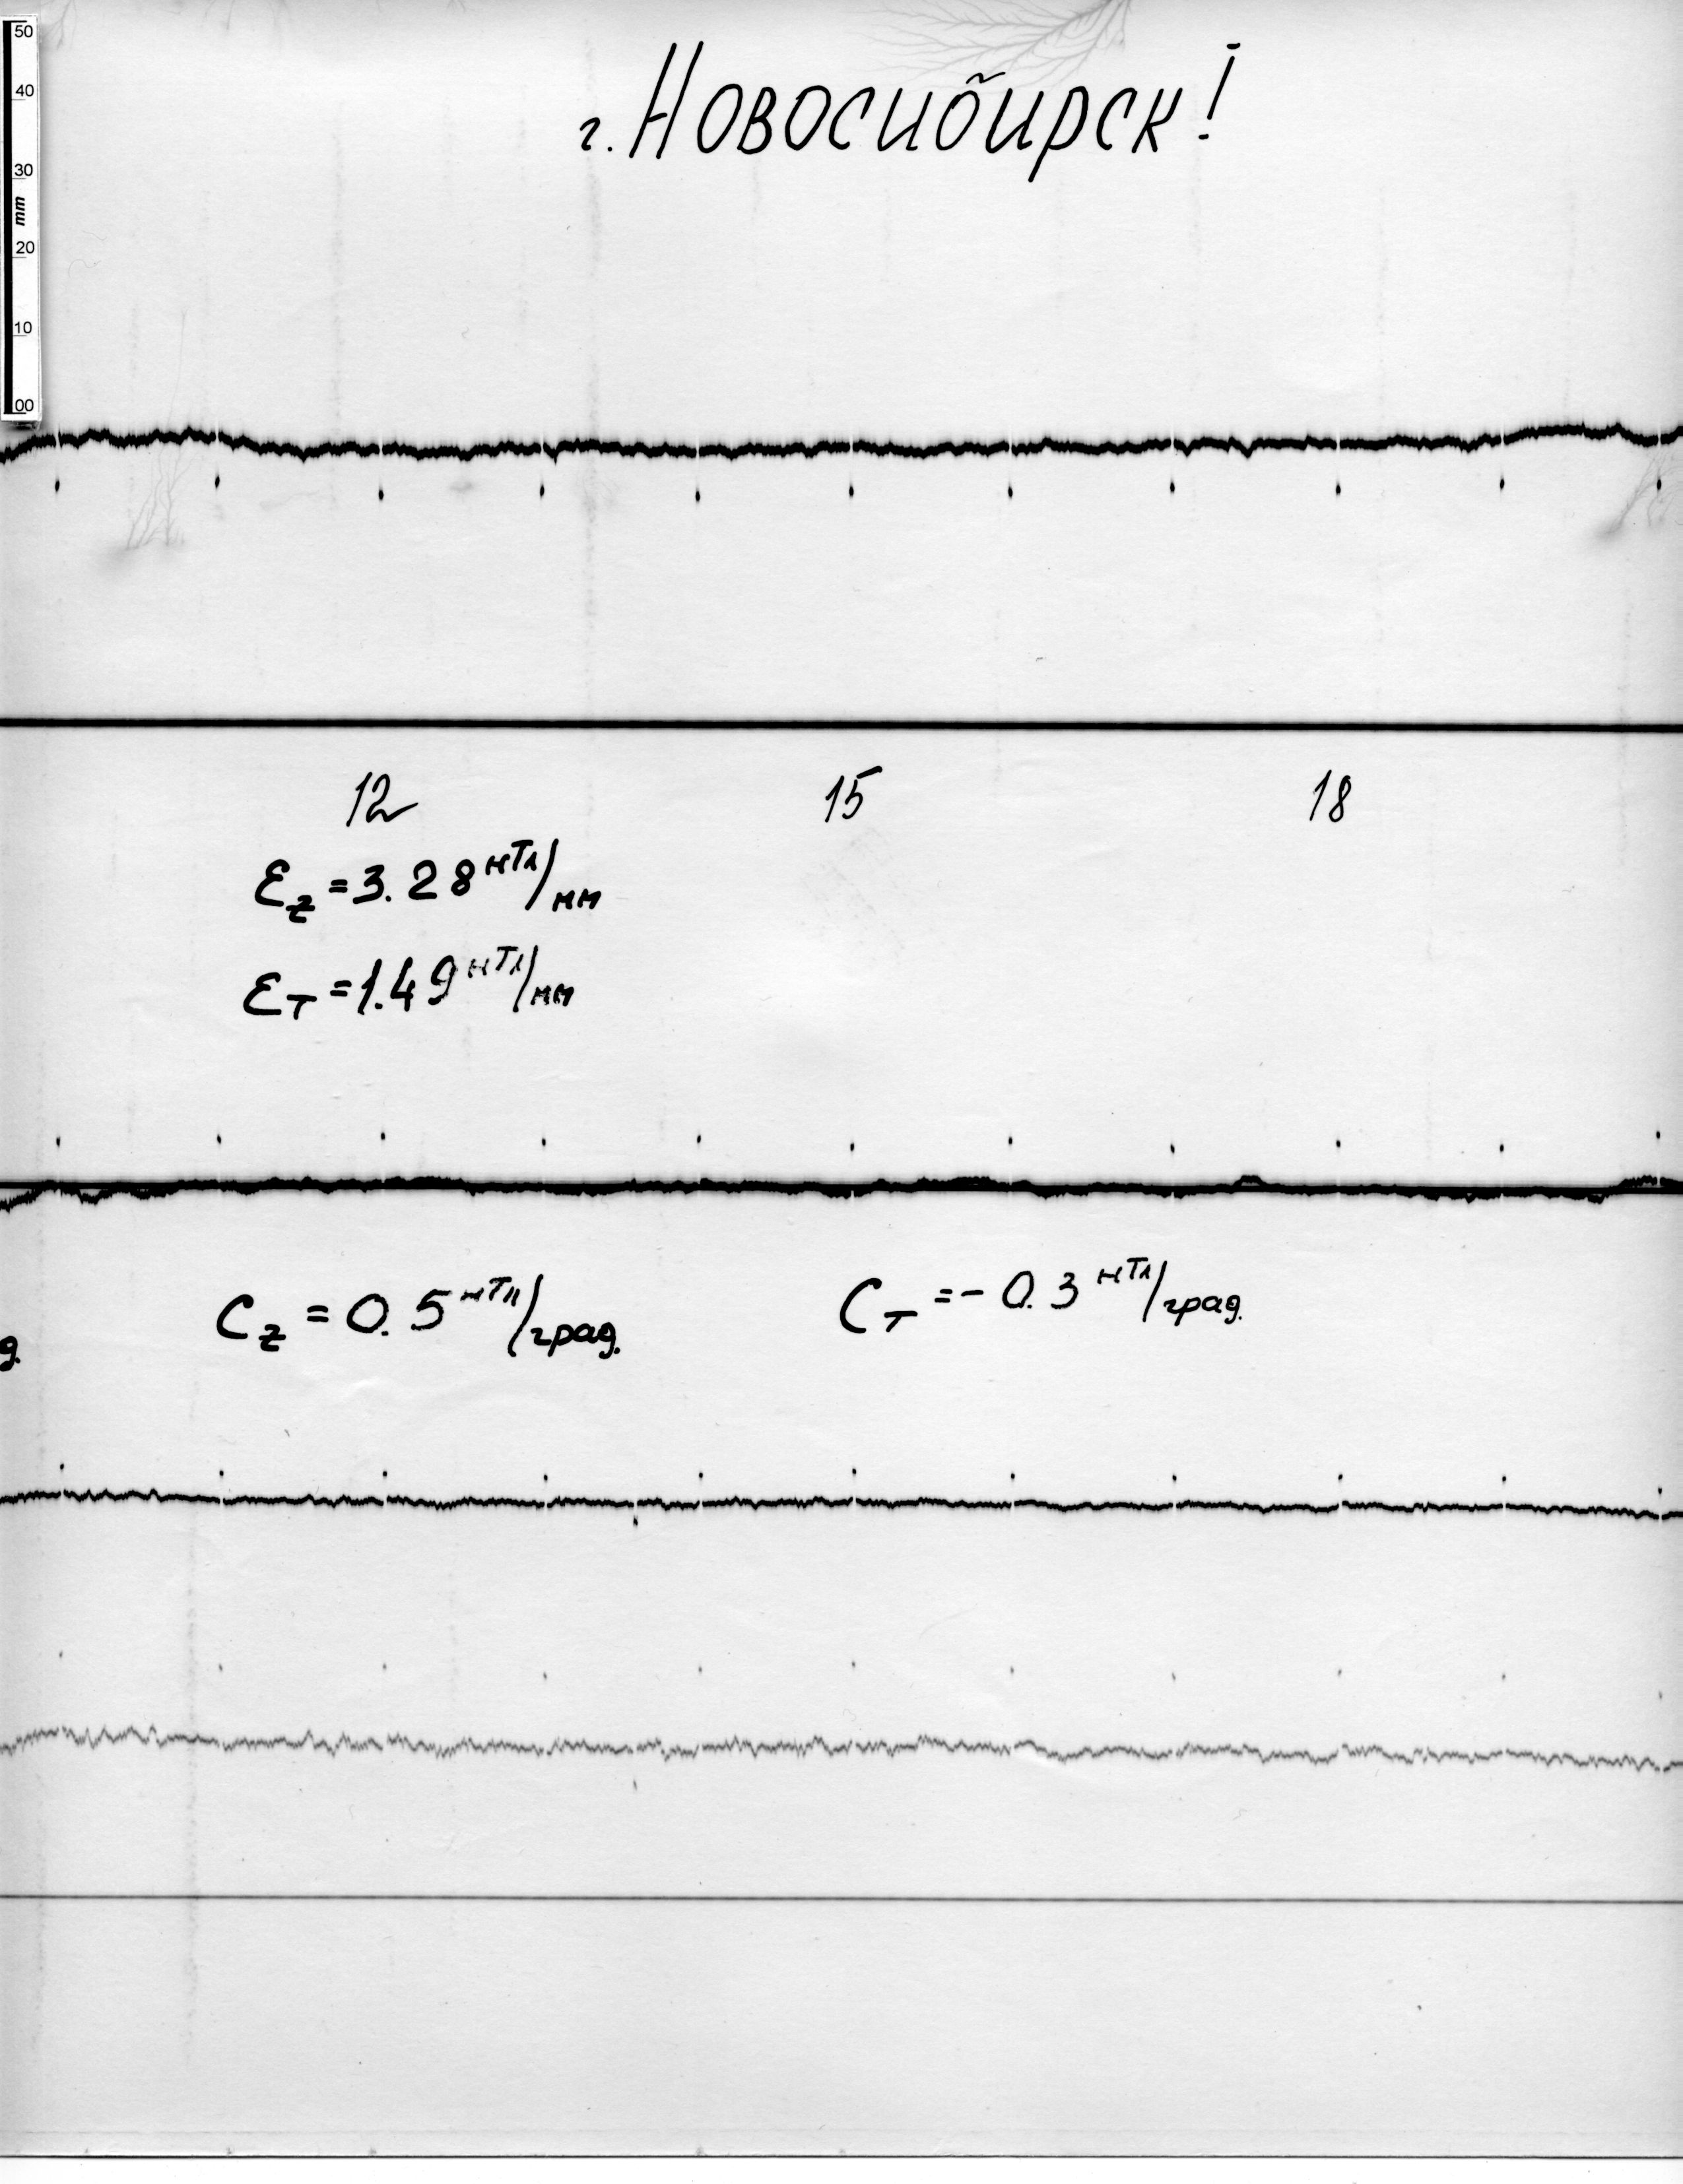 50
40
30
mm
20
10
00
г. Новосибирск!
12 15 18
Ɛz = 3.28 нТл/мм
Ɛт = 1.49 нТл/мм
Cz = 0.5 нТл/град.
Cт = - 0.3 нТл/град.
д.